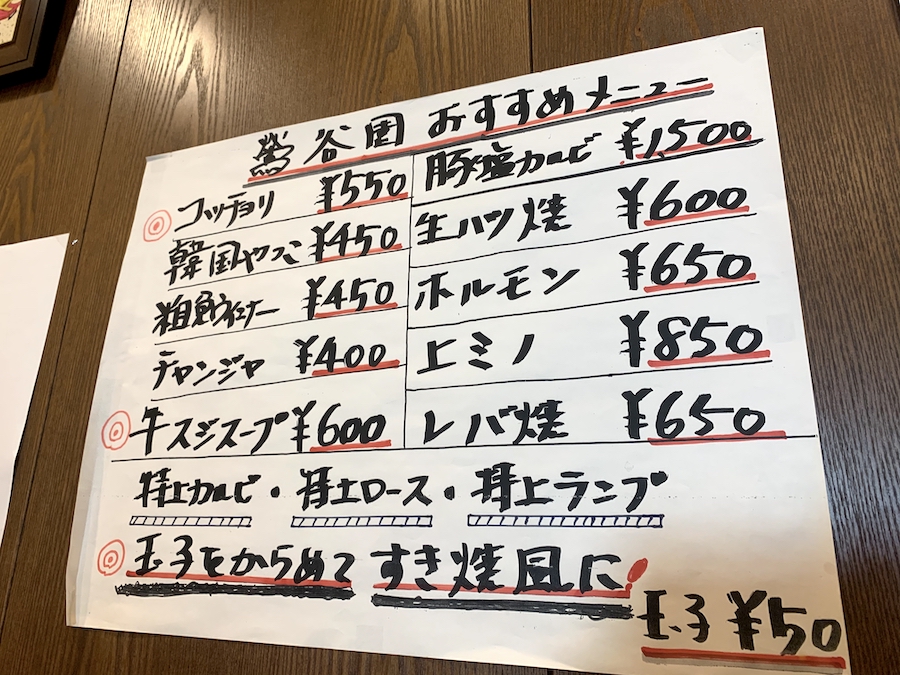 鶯谷園 おすすめメニュー
コッチョリ ¥550
韓国やっこ ¥450
粗挽ウインナー ¥450
チャンジャ ¥400
牛スジスープ ¥600
豚塩カルビ ¥1,500
生ハツ焼 ¥600
ホルモン ¥650
上ミノ ¥850
レバ焼 ¥650
特上カルビ・特上ロース・特上ランプ
玉子をからめて すき焼風に!
玉子 ¥50